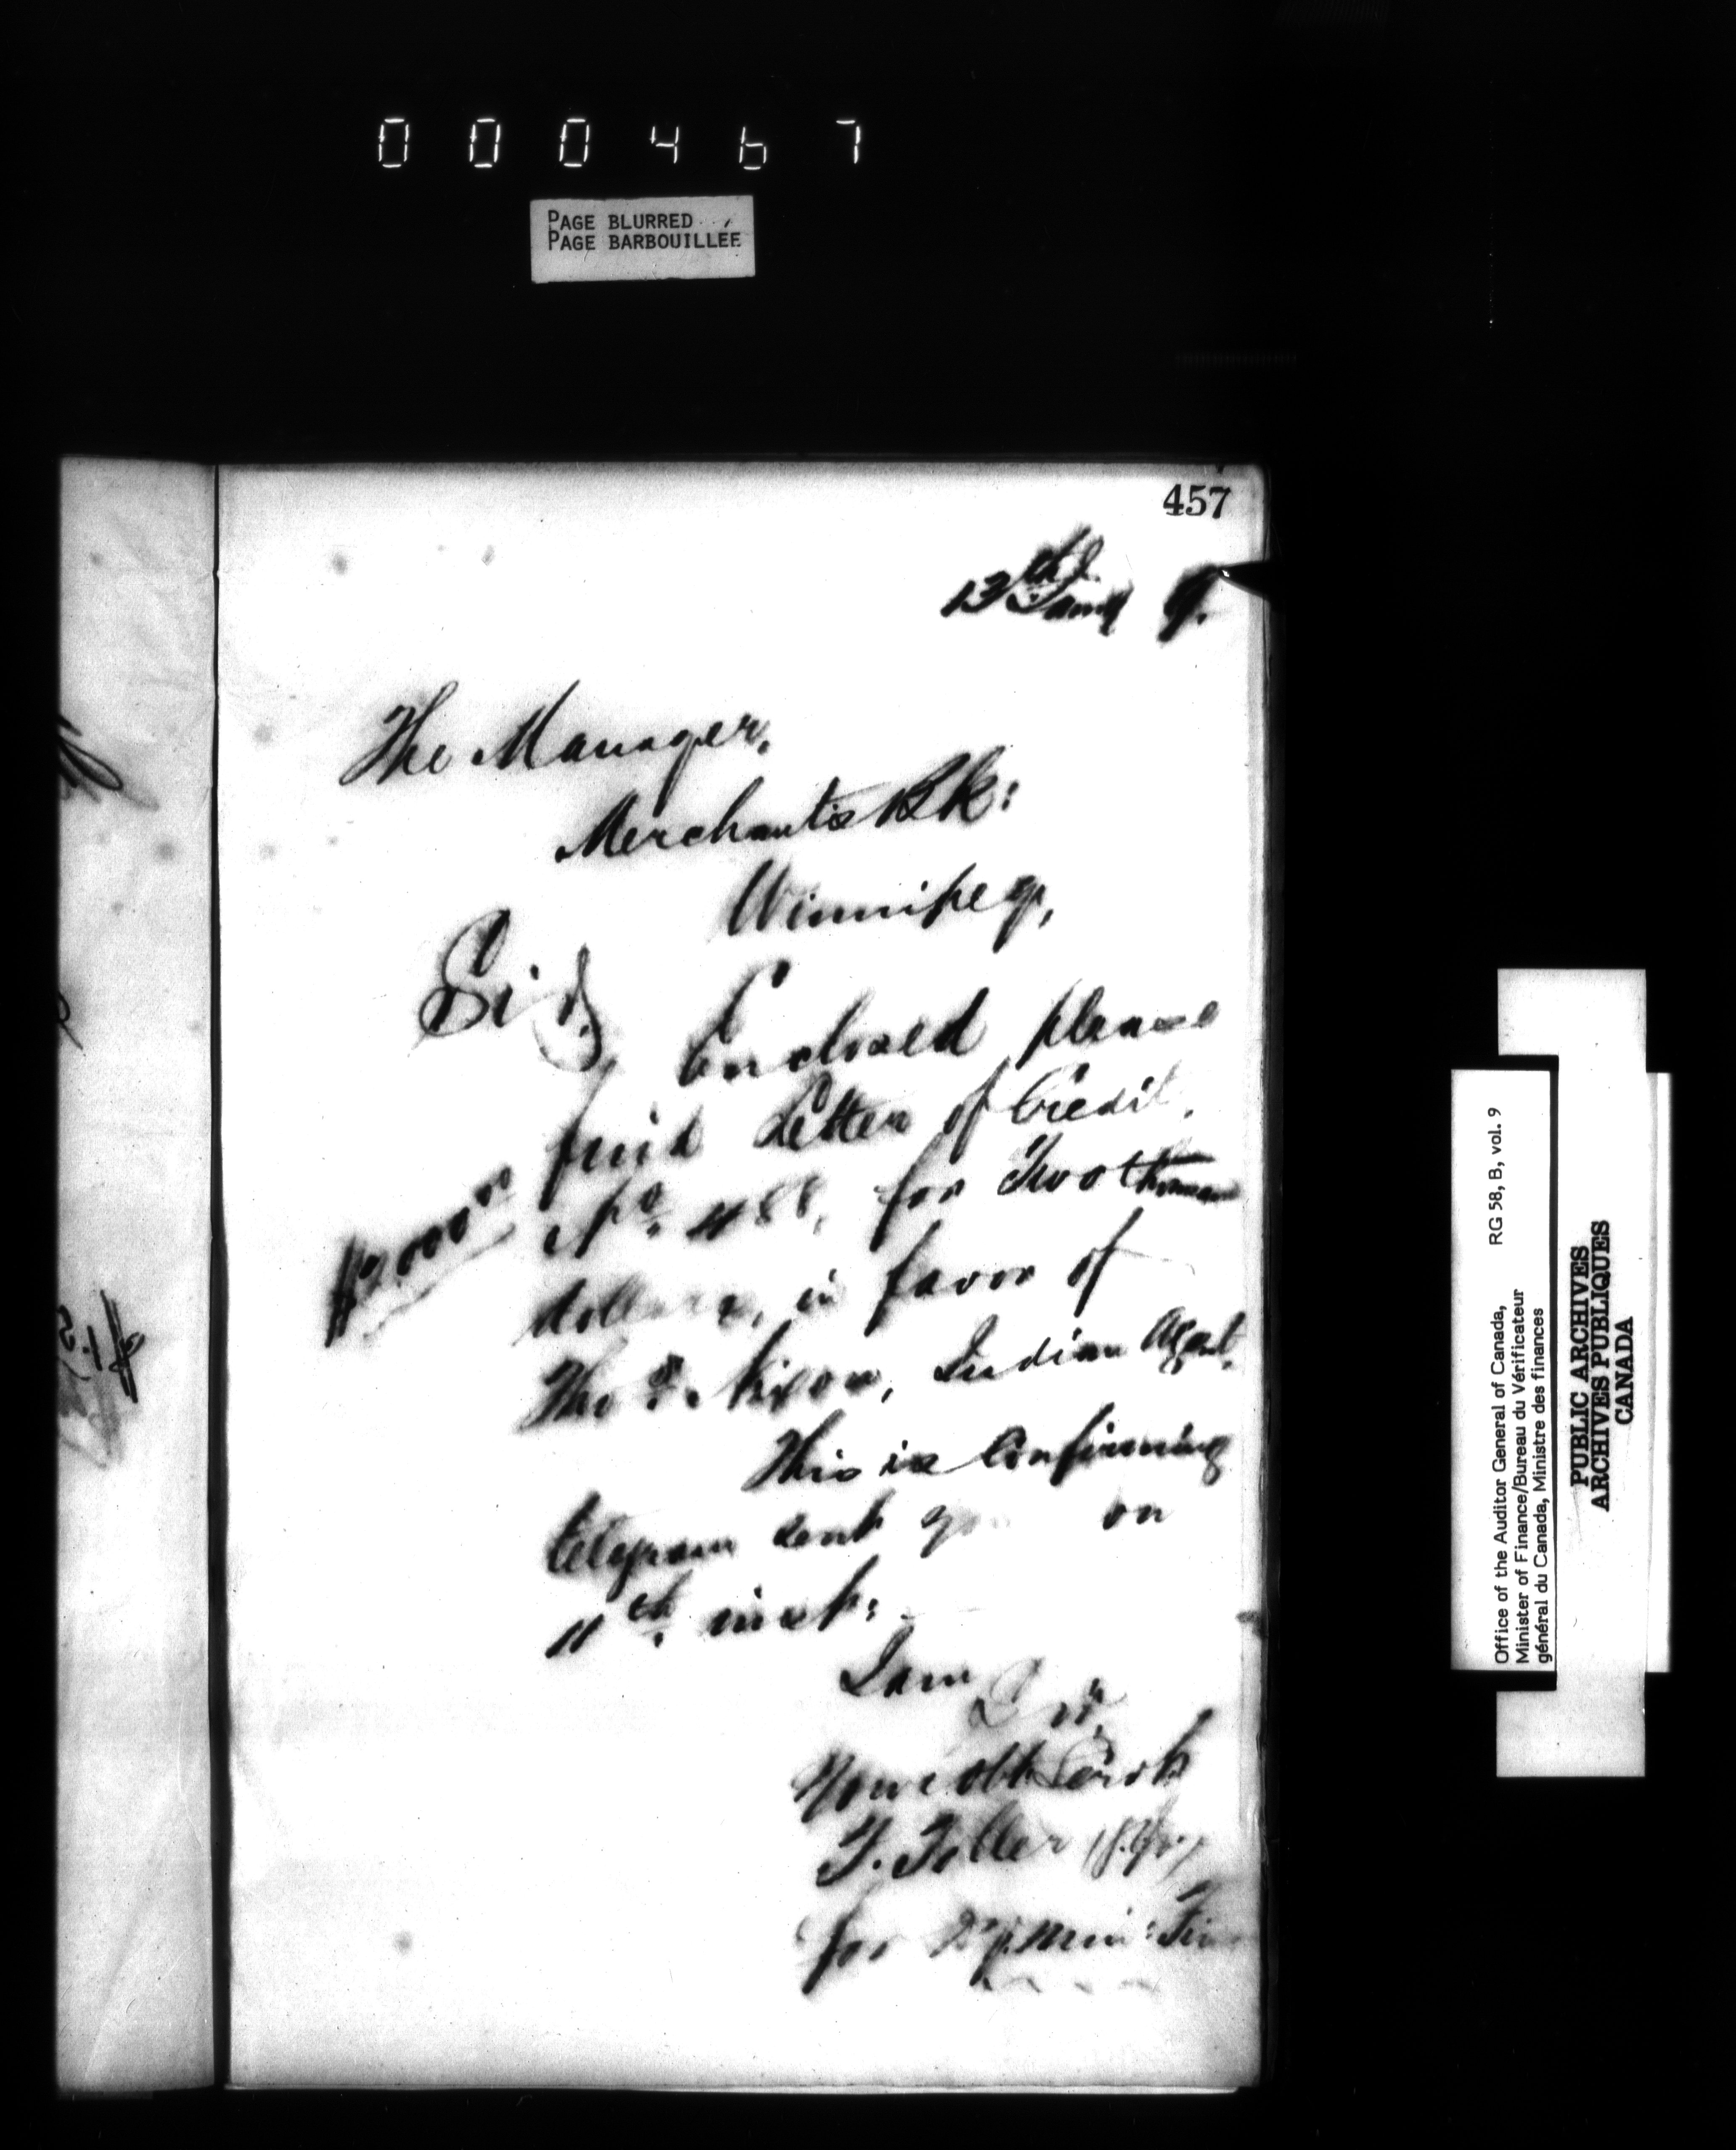 000467
PAGE BLURRED
PAGE BARBOUILLÉE
457
13th Jany 9.
The Manager,
Merchants Bk:
Winnipeg,
Sir,
Enclosed please
find Letter of Credit,
No. 488, for Two thousand
$2000.00
dollars, in favor of
Thos. Nixon, Indian Agent.
This is Confirming
telegram sent you on
11th inst:
I am
Sir
Your obt Servt
T.
for Dy. Min: Fin
Office of the Auditor General of Canada,
RG 58, B, vol. 9
Minister of Finance/Bureau du Vérificateur
général du Canada, Ministre des finances
PUBLIC ARCHIVES
ARCHIVES PUBLIQUES
CANADA